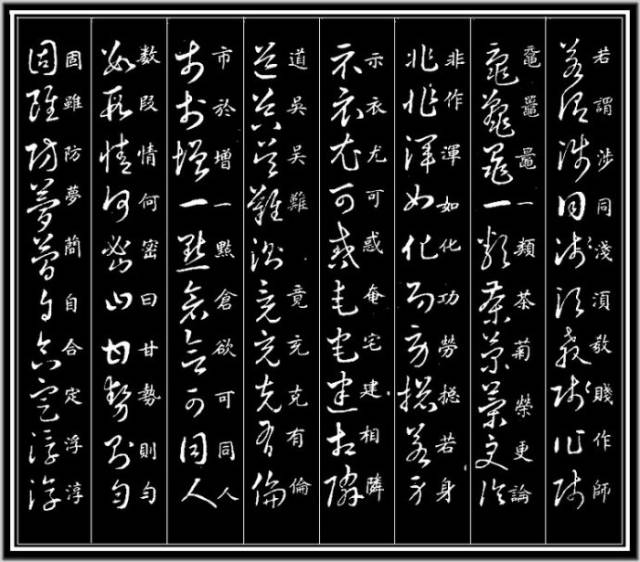 若謂涉同淺須敬賤作師
一類茶菊榮更論
非作渾如化功勞摠若身
示衣尤可惑奄宅建相隣
道吳吳難竟充克有倫
市於增一點倉欲可同人
數段情何密曰甘勢則勻
固雖防夢自合定浮淳